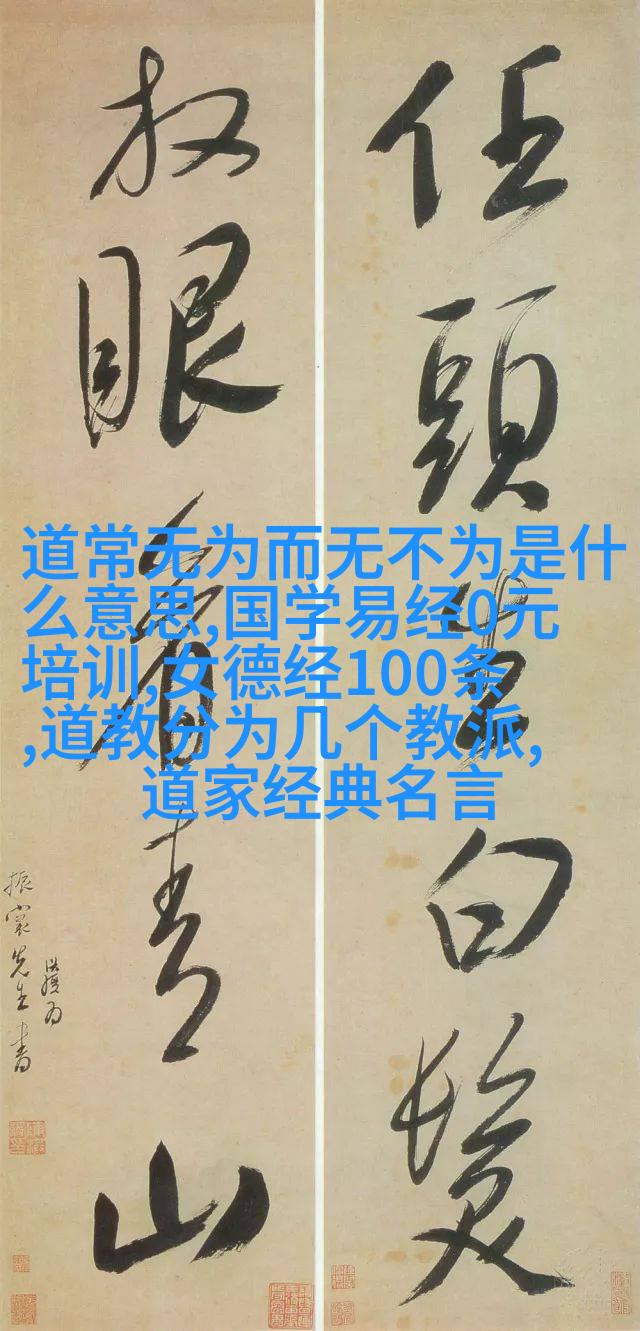 任頭生白髮
放眼看青山
振裳先生書
道常无为而无不为是什
么意思,国学易经0元
培训,女德经100条
,道教分为几个教派,
道家经典名言